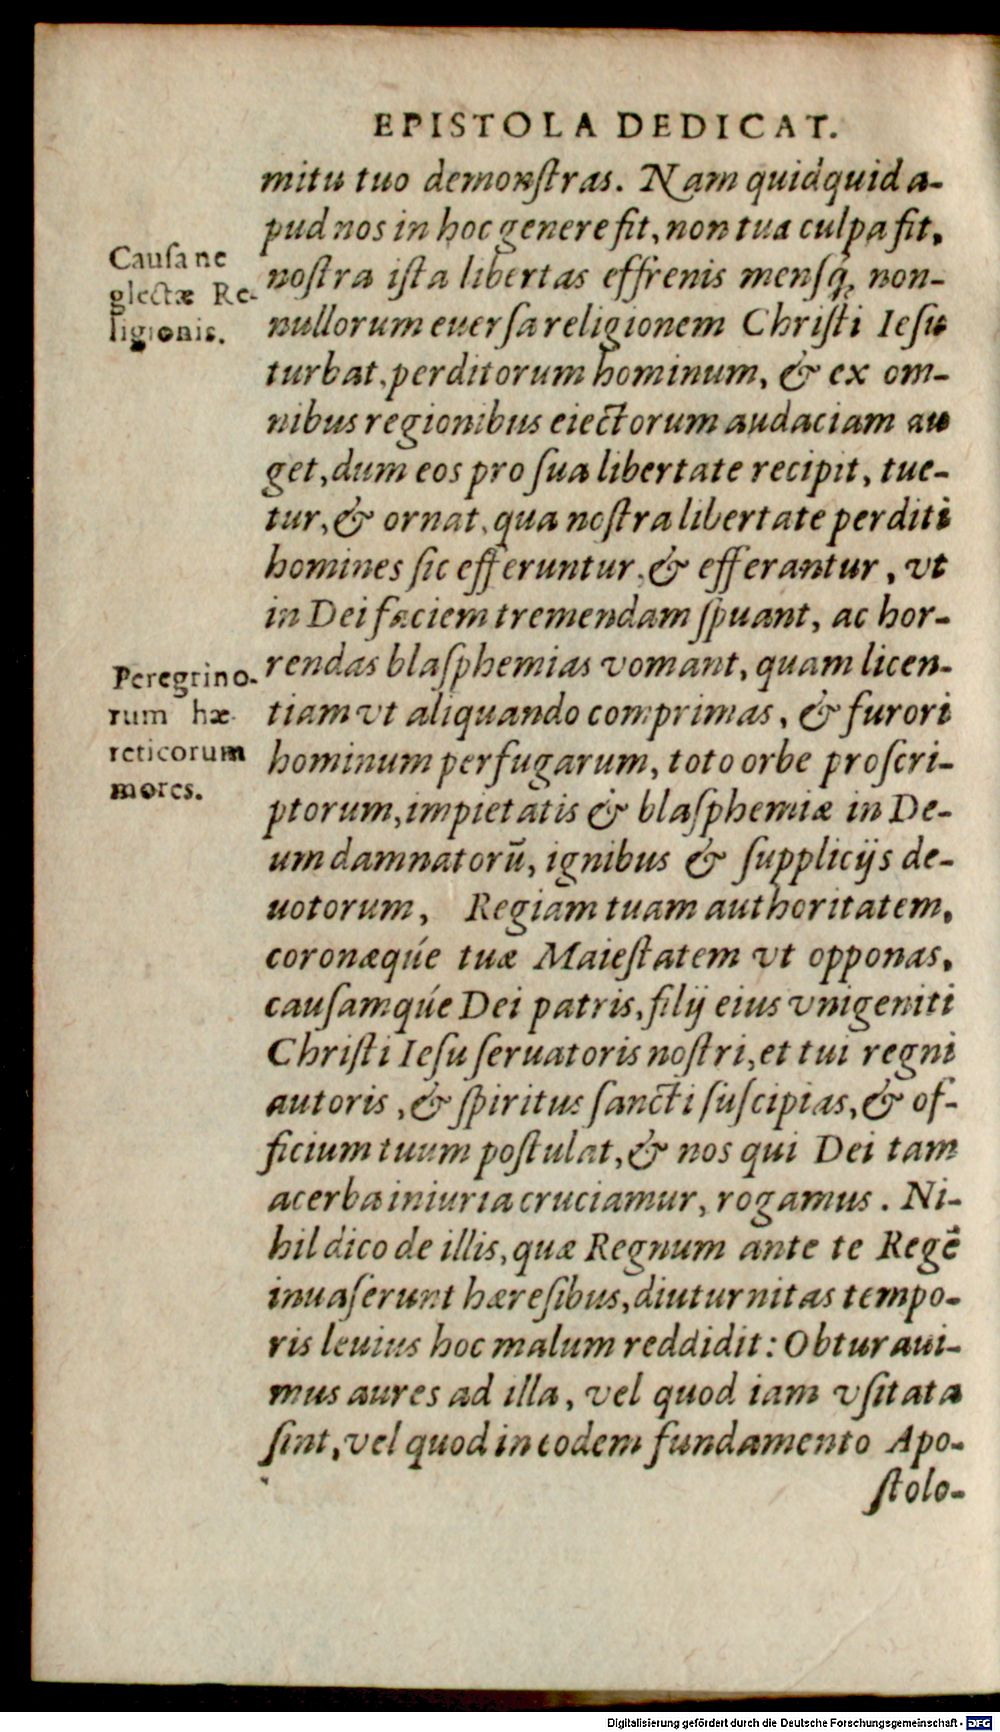 EPISTOLA DEDICAT.
mitu tuo demonſtras. Nam quidquid a-
pud nos in hoc genere fit, non tua culpa fit,
Cauſa ne
glectæ Re-
ligionis.
noſtra iſta libertas effrenis mensq́; non-
nullorum euerſa religionem Chriſti Ieſu
turbat, perditorum hominum, & ex om-
nibus regionibus eiectorum audaciam au
get, dum eos pro ſua libertate recipit, tue-
tur, & ornat, qua noſtra libertate perditi
homines ſic efferuntur, & efferantur, vt
in Dei faciem tremendam ſpuant, ac hor-
Peregrino-
rum hæ-
reticorum
mores.
rendas blaſphemias vomant, quam licen-
tiam vt aliquando comprimas, & furori
hominum perfugarum, toto orbe proſcri-
ptorum, impietatis & blaſphemiæ in De-
um damnatorū, ignibus & ſupplicijs de-
uotorum, Regiam tuam authoritatem,
coronæqúe tuæ Maieſtatem vt opponas,
cauſamqúe Dei patris, filij eius vnigeniti
Chriſti Ieſu ſeruatoris noſtri, et tui regni
autoris, & ſpiritus ſancti ſuſcipias, & of-
ficium tuum poſtulat, & nos qui Dei tam
acerba iniuria cruciamur, rogamus. Ni-
hil dico de illis, quæ Regnum ante te Regē
inuaſerunt hæreſibus, diuturnitas tempo-
ris leuius hoc malum reddidit: Obturaui-
mus aures ad illa, vel quod iam vſitata
ſint, vel quod in eodem fundamento Apo-
ſtolo-
Digitalisierung gefördert durch die Deutsche Forschungsgemeinschaft - DFG